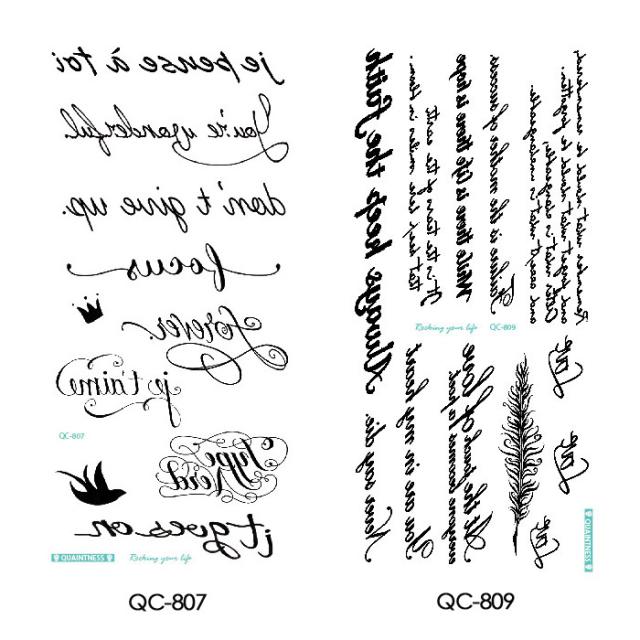 je pense à toi
You're wonderful.
don't give up.
focus
forever.
je t'aime
QC-807
Type
Nerd
it goes on
QUAINTNESS
Rocking your life
QC-807
Always keep the faith
that keeps love makes in them
It is the stars of the
While there is life there is hope
Failure is the mother of success
and accept what is
and forget what should be forgotten.
Remember what should be remembered,
Rocking your life
QC-809
Never say die.
You are in my heart
everyone becomes a poet
At the touch of love
Love
Love
Love
QUAINTNESS
QC-809